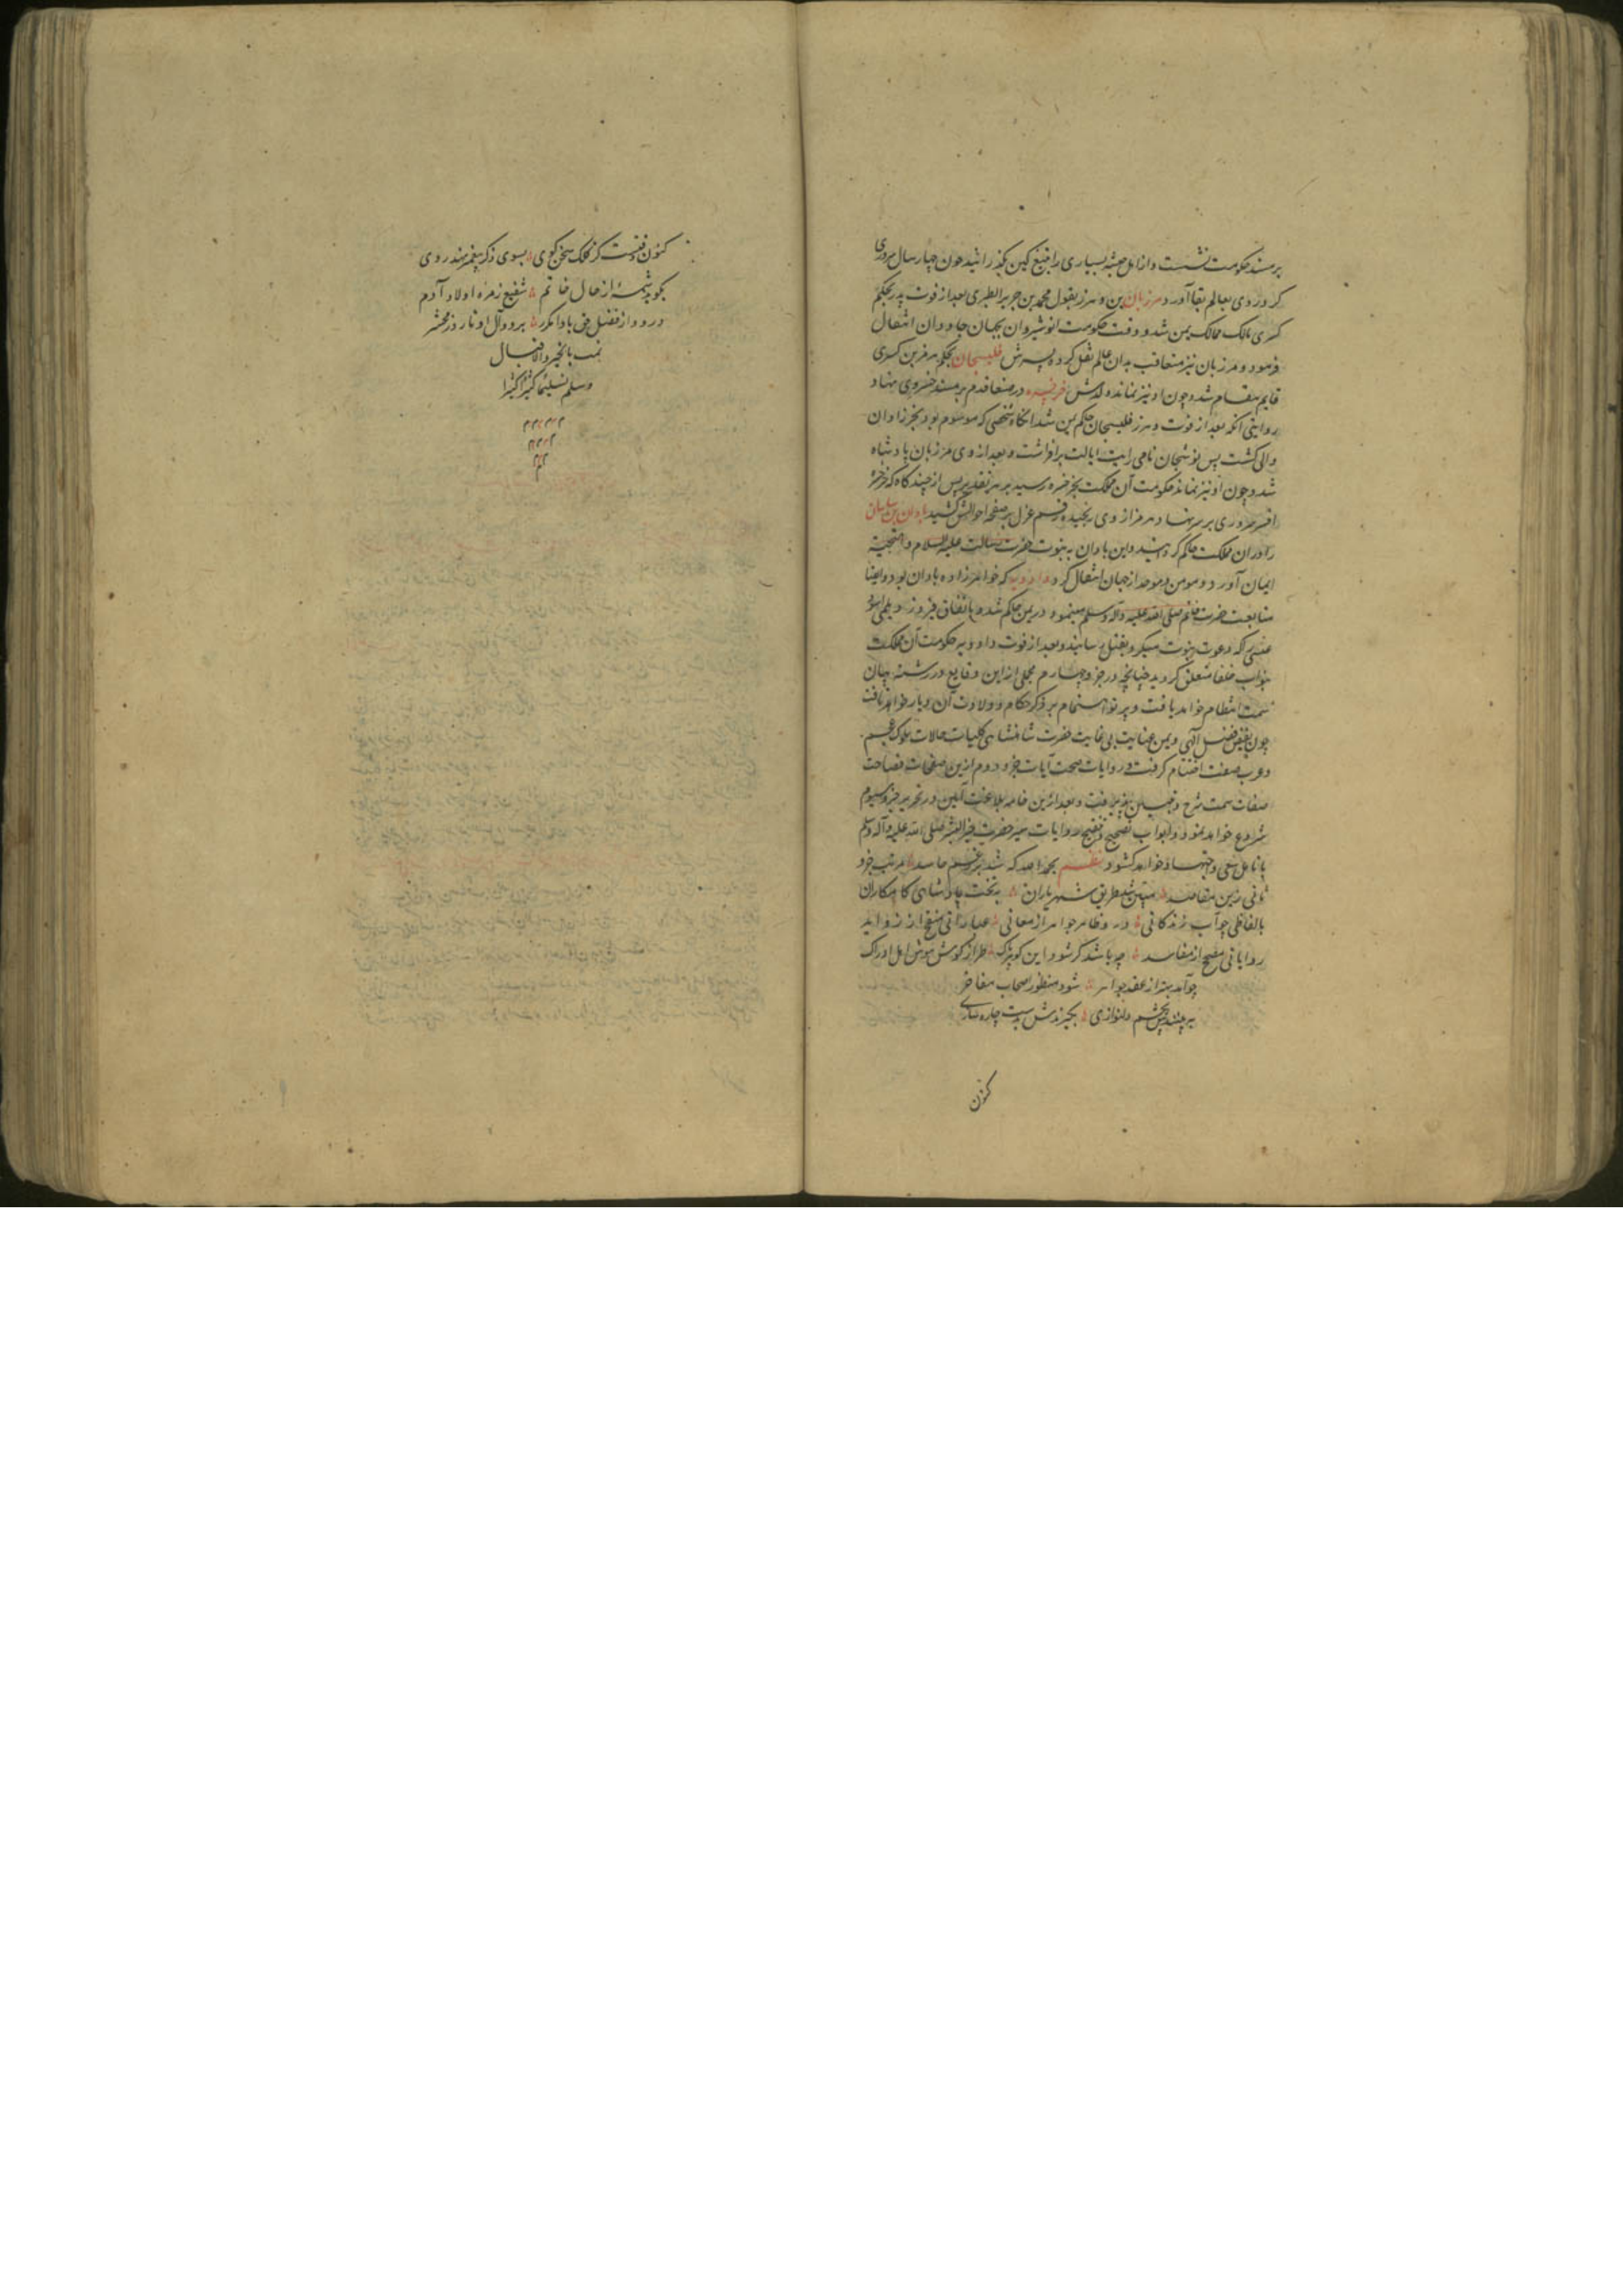 بر مسند حکومت نشست و از اهل حبشه بسیاری را بتیغ کین بگذرانید چون چهار سال سروری
کرد روی بعالم بقا آورد مرزبان بن وهرز بقول محمد بن جریر الطبری بعد از فوت پدر بحکم
کسری مالک ممالک یمن شد و وقت حکومت انوشیروان بجهان جاودان انتقال
فرمود و مرزبان نیز متعاقب بدان عالم نقل کرده پسرش فلیسجان بحکم هرمز بن کسری
قایم مقام شد و چون او نیز نماند ولدش خرخسره در صنعا قدم بر مسند خسروی نهاد
روایتی آنکه بعد از فوت وهرز فلیسجان حاکم یمن شد آنگاه شخصی که موسوم بود بخرزادان
والی گشت پس نوشجان نامی رایت ایالت برافراشت و بعد از وی مرزبان پادشاه
شد و چون او نیز نماند حکومت آن مملکت بخرخسره رسید بر هر تقدیر پس از چند گاه که خرخسره
افسر سروری بر سر نهاد هرمز از وی رنجیده رقم عزل بر صفحه احوالش کشید باذان بن ساسان
را در آن مملکت حاکم گردانید و این باذان به نبوت حضرت رسالت علیه السلام و التحیة
ایمان آورد و مومن و موحد از جهان انتقال کرد دادویه که خواهرزاده باذان بود و ایضا
متابعت حضرت خاتم صلی الله علیه وآله وسلم مینمود در یمن حاکم شد و باتفاق فیروز دیلمی اسود
عنسی را که دعوت نبوت میکرد بقتل رسانید و بعد از فوت دادویه حکومت آن مملکت
بنواب خلفا متعلق گردید چنانچه در جزو چهارم مجملی از این وقایع در رشته بیان
سمت انتظام خواهد یافت و پرتو اهتمام بر ذکر حکام و ولات آن دیار خواهد تافت
چون بفیض فضل الهی و یمن عنایت بی غایت حضرت شاهنشاهی کلیات حالات ملوک عجم
و عرب صفت اختتام گرفت و روایات صحت آیات جزو دوم ازین صفحات فصاحت
صفات سمت شرح و تبیین پذیرفت و بعد ازین خامه بلاغت آیین در تحریر جزو سیوم
شروع خواهد نمود و ابواب تصحیح و تنقیح روایات سیر حضرت خیر البشر صلی الله علیه وآله وسلم
بانامل سعی و اجتهاد خواهد گشود نظم بحمد الله که شد بر رغم حاسد مرتب جزو
ثانی زین مقاصد مبین شد طریق شهریاران بتخت پادشاهی کامکاران
بالفاظی چو آب زندگانی درو ظاهر جواهر از معانی عباراتی منقح از زواید
روایاتی مصحح از مفاسد چه باشد گر شود این گوهر پاک طراز گوش هوش اهل ادراک
چو آمد بهتر از عقد جواهر شود منظور اصحاب مفاخر
ببینندش بچشم دلنوازی بگیرندش بدست چاره سازی
کنون
کنون وقتست کز کلک سخن گوی بسوی ذکر پیغمبر نهد روی
بگوید شمه از حال خاتم شفیع زمره اولاد آدم
درود از فضل حق بادا مکرر برو و آل او تا روز محشر
تمت بالخیر والاقبال
وسلم تسلیما کثیرا کثیرا